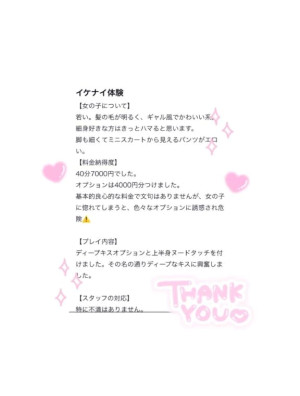 イケナイ体験
【女の子について】
若い。髪の毛が明るく、ギャル風でかわいい系。
細身好きな方はきっとハマると思います。
脚も細くてミニスカートから見えるパンツがエロ
い。
【料金納得度】
40分7000円でした。
オプションは4000円分つけました。
基本的良心的な料金で文句はありませんが、女の子
に惚れてしまうと、色々なオプションに誘惑され危
険⚠️
【プレイ内容】
ディープキスオプションと上半身ヌードタッチを付
けました。その名の通りディープなキスに興奮しま
した。
【スタッフの対応】
特に不満はありません。
THANK
YOU